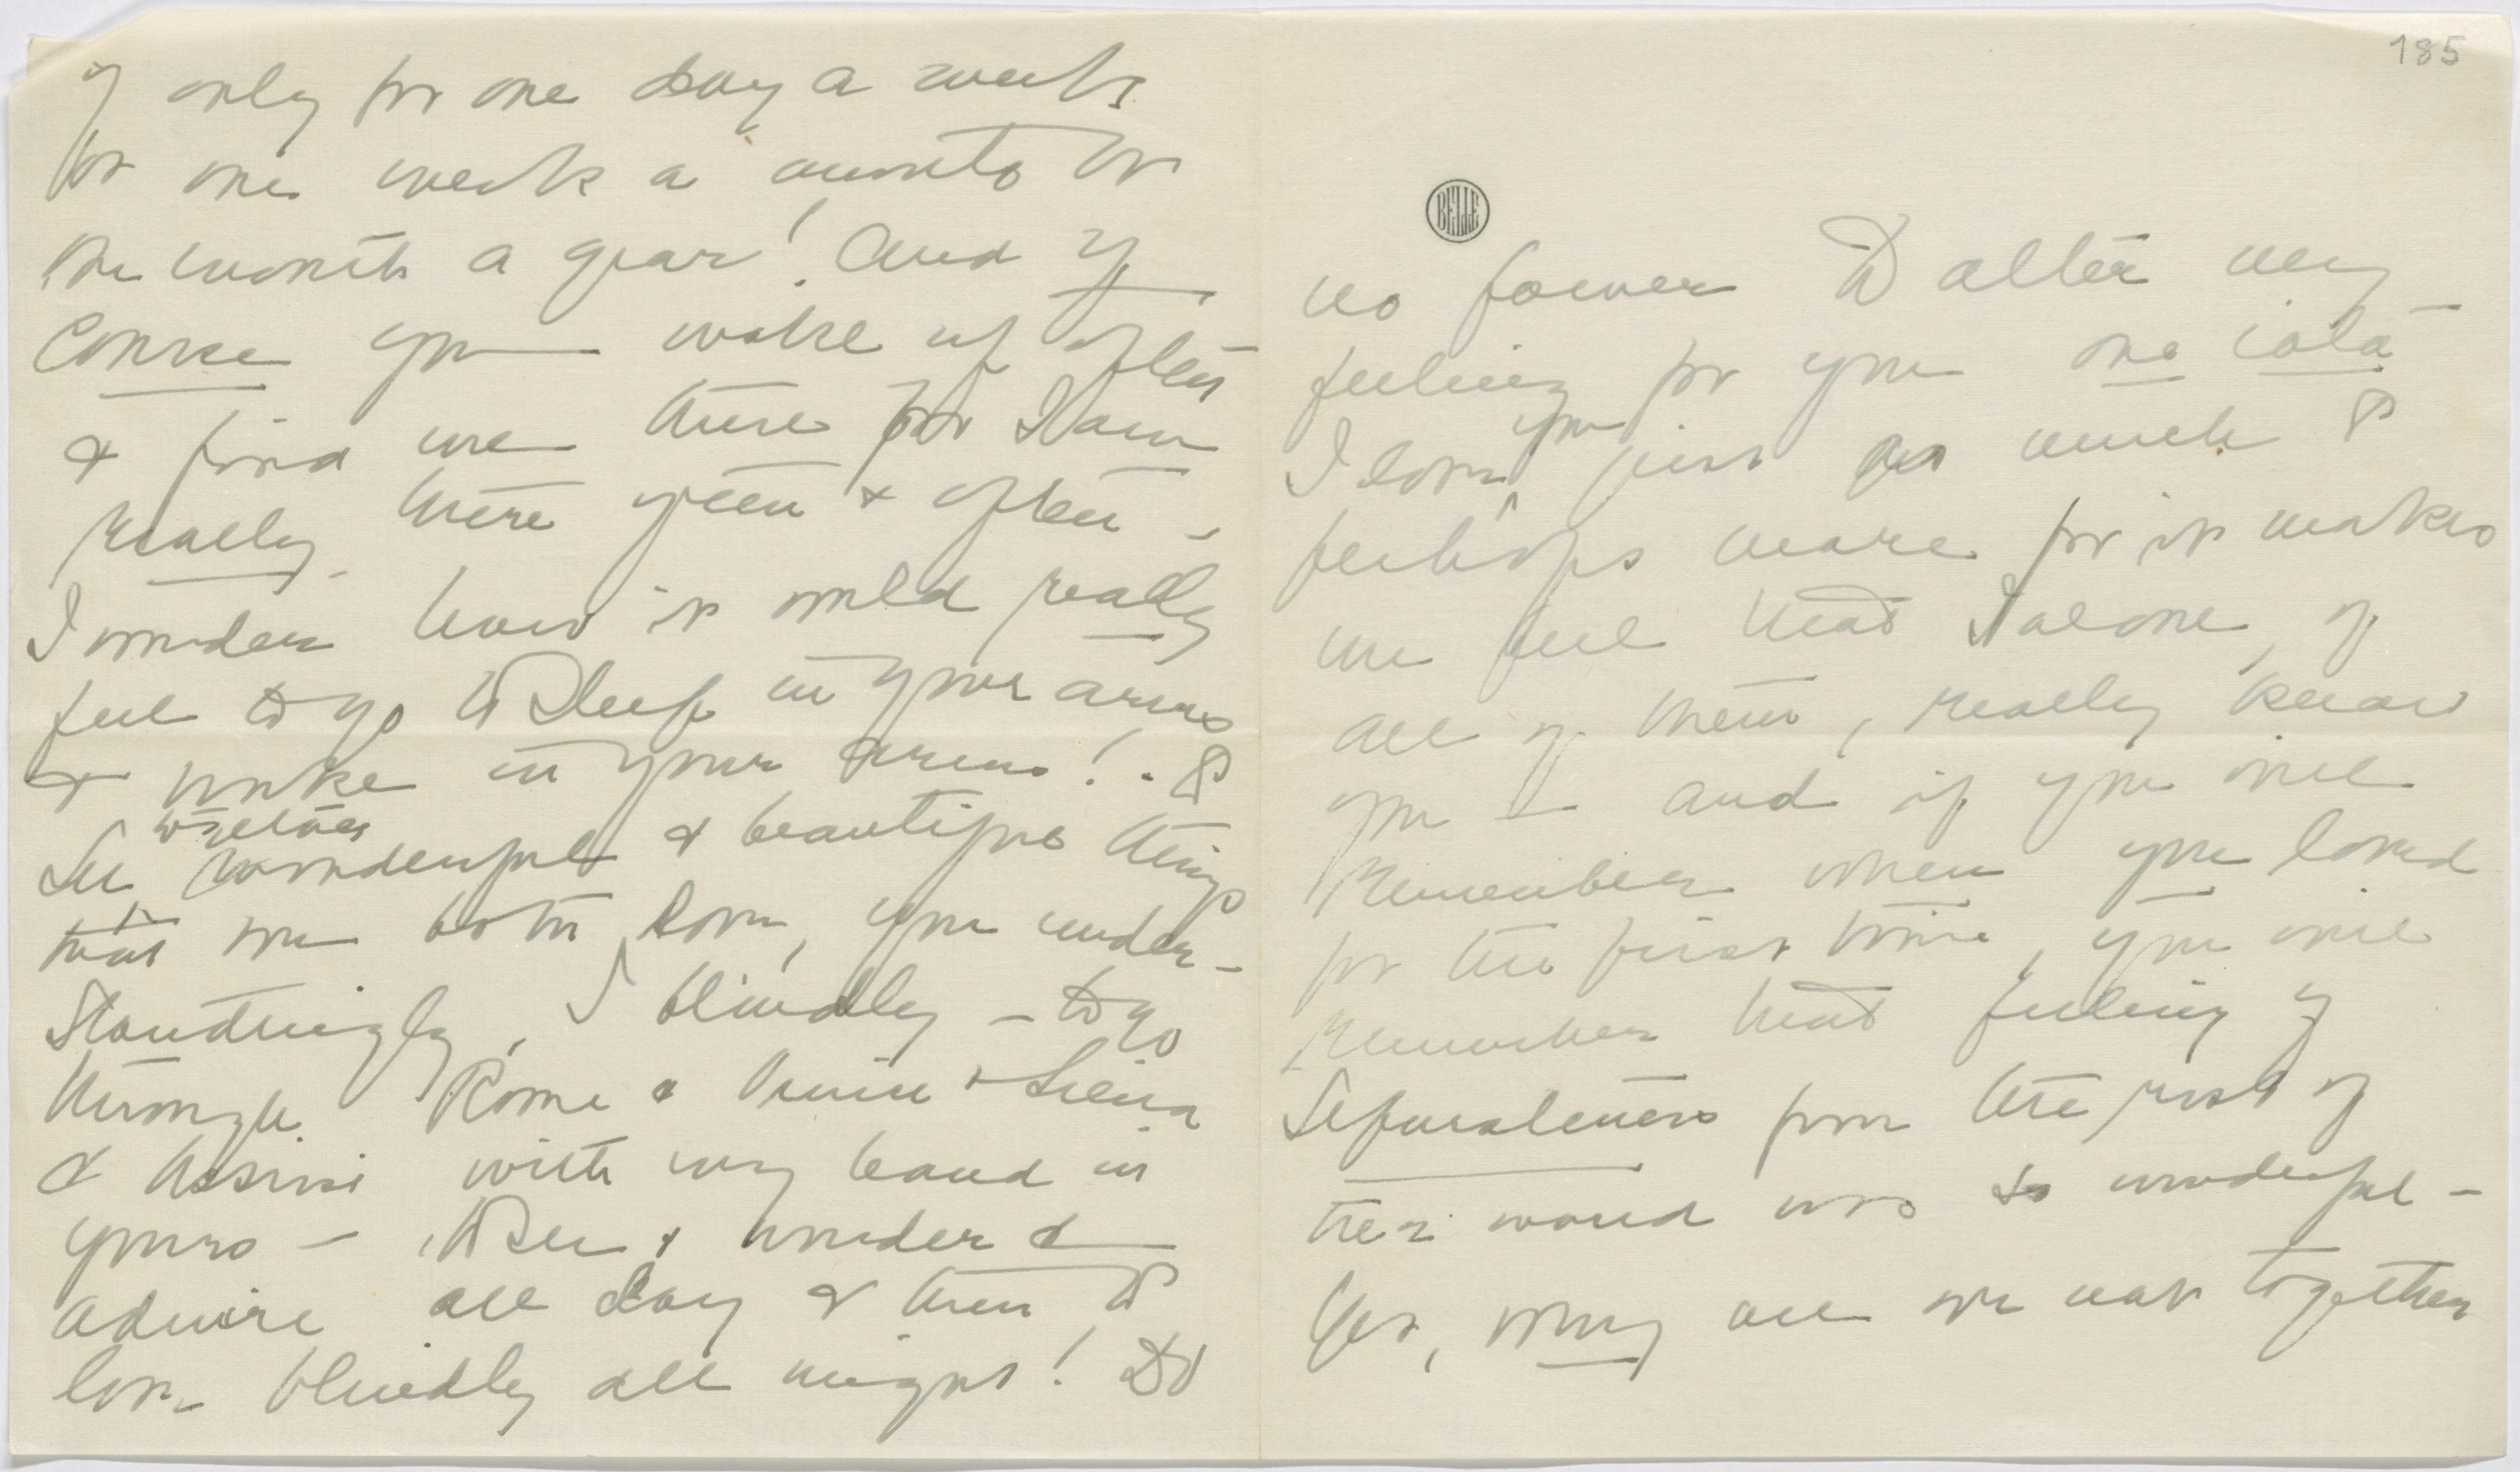 if only for one day a week
or one week a month or
one month a year! And of
course you wake up often
& find me there for I am
really there often & often -
I wonder how it would really
feel to go to sleep in your arms
& wake in your arms! . To
together
see wonderful & beautiful things
that we both love, you under-
standingly, I blindly - to go
through Rome & Venice & Siena
& Assisi with my hand in
yours - to see & wonder &
admire all day & then to
love blindly all night! Do
185
BELLE
no power to alter my -
feeling for you one iota
I love you just as much &
perhaps more for it makes
me feel that I alone, of
all of them, really know
you - and if you will
remember when you loved
for the first time, you will
remember that feeling of
separateness from the rest of
the world was so wonderful -
Yes, why are we not together